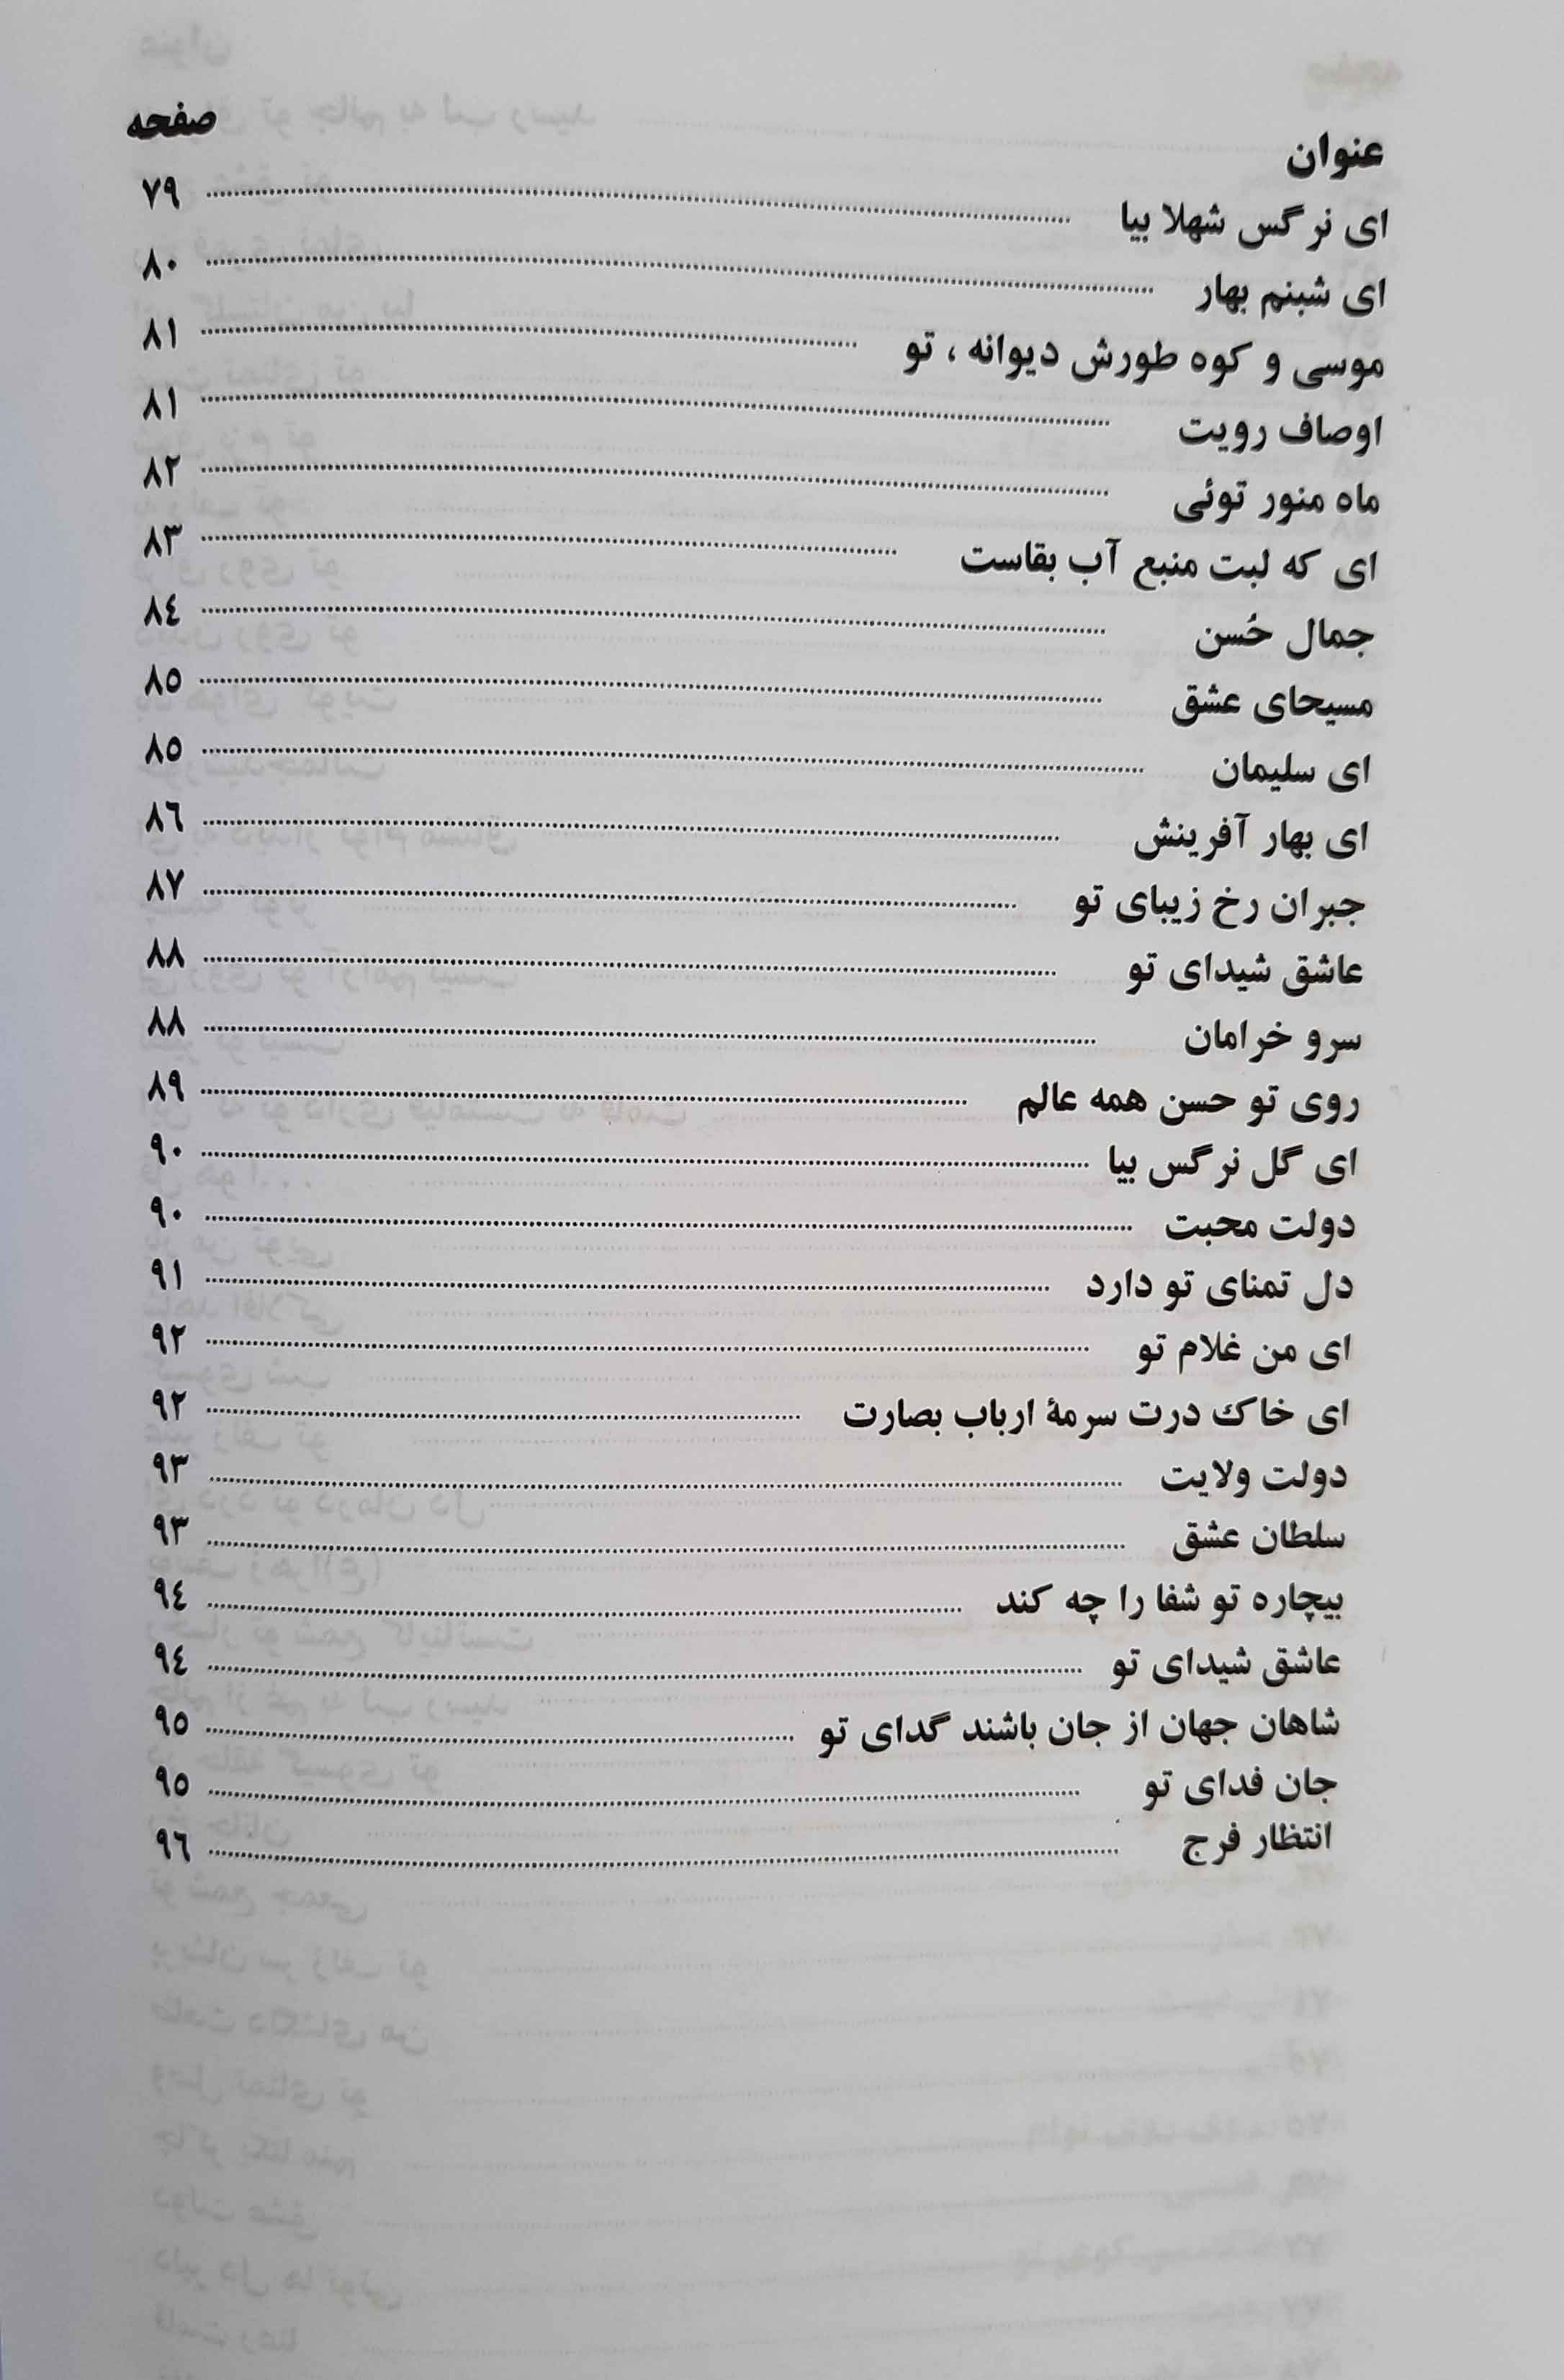 عنوان صفحه
ای نرگس شهلا بیا ........ ۷۹
ای شبنم بهار ........ ۸۰
موسی و کوه طورش دیوانه ، تو ........ ۸۱
اوصاف رویت ........ ۸۱
ماه منور توئی ........ ۸۲
ای که لبت منبع آب بقاست ........ ۸۳
جمال حُسن ........ ۸٤
مسیحای عشق ........ ۸۵
ای سلیمان ........ ۸۵
ای بهار آفرینش ........ ۸٦
جبران رخ زیبای تو ........ ۸۷
عاشق شیدای تو ........ ۸۸
سرو خرامان ........ ۸۸
روی تو حسن همه عالم ........ ۸۹
ای گل نرگس بیا ........ ۹۰
دولت محبت ........ ۹۰
دل تمنای تو دارد ........ ۹۱
ای من غلام تو ........ ۹۲
ای خاک درت سرمۀ ارباب بصارت ........ ۹۲
دولت ولایت ........ ۹۳
سلطان عشق ........ ۹۳
بیچاره تو شفا را چه کند ........ ۹٤
عاشق شیدای تو ........ ۹٤
شاهان جهان از جان باشند گدای تو ........ ۹۵
جان فدای تو ........ ۹۵
انتظار فرج ........ ۹٦